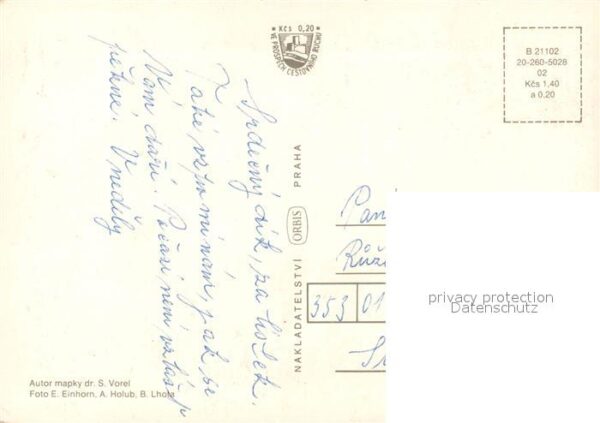 * Kčs 0,20 *
VE PROSPĚCH CESTOVNÍHO RUCHU
B 21102
20-260-5028
02
Kčs 1,40
a 0.20
Srdečný dík, za lístek.
Také vzpomínám, jak se
Vám daří. Počasí není
pěkné. V neděly
NAKLADATELSTVÍ ORBIS PRAHA
Pan
Růž
353 01
privacy protection
Datenschutz
Autor mapky dr. S. Vorel
Foto E. Einhorn, A. Holub, B. Lhota